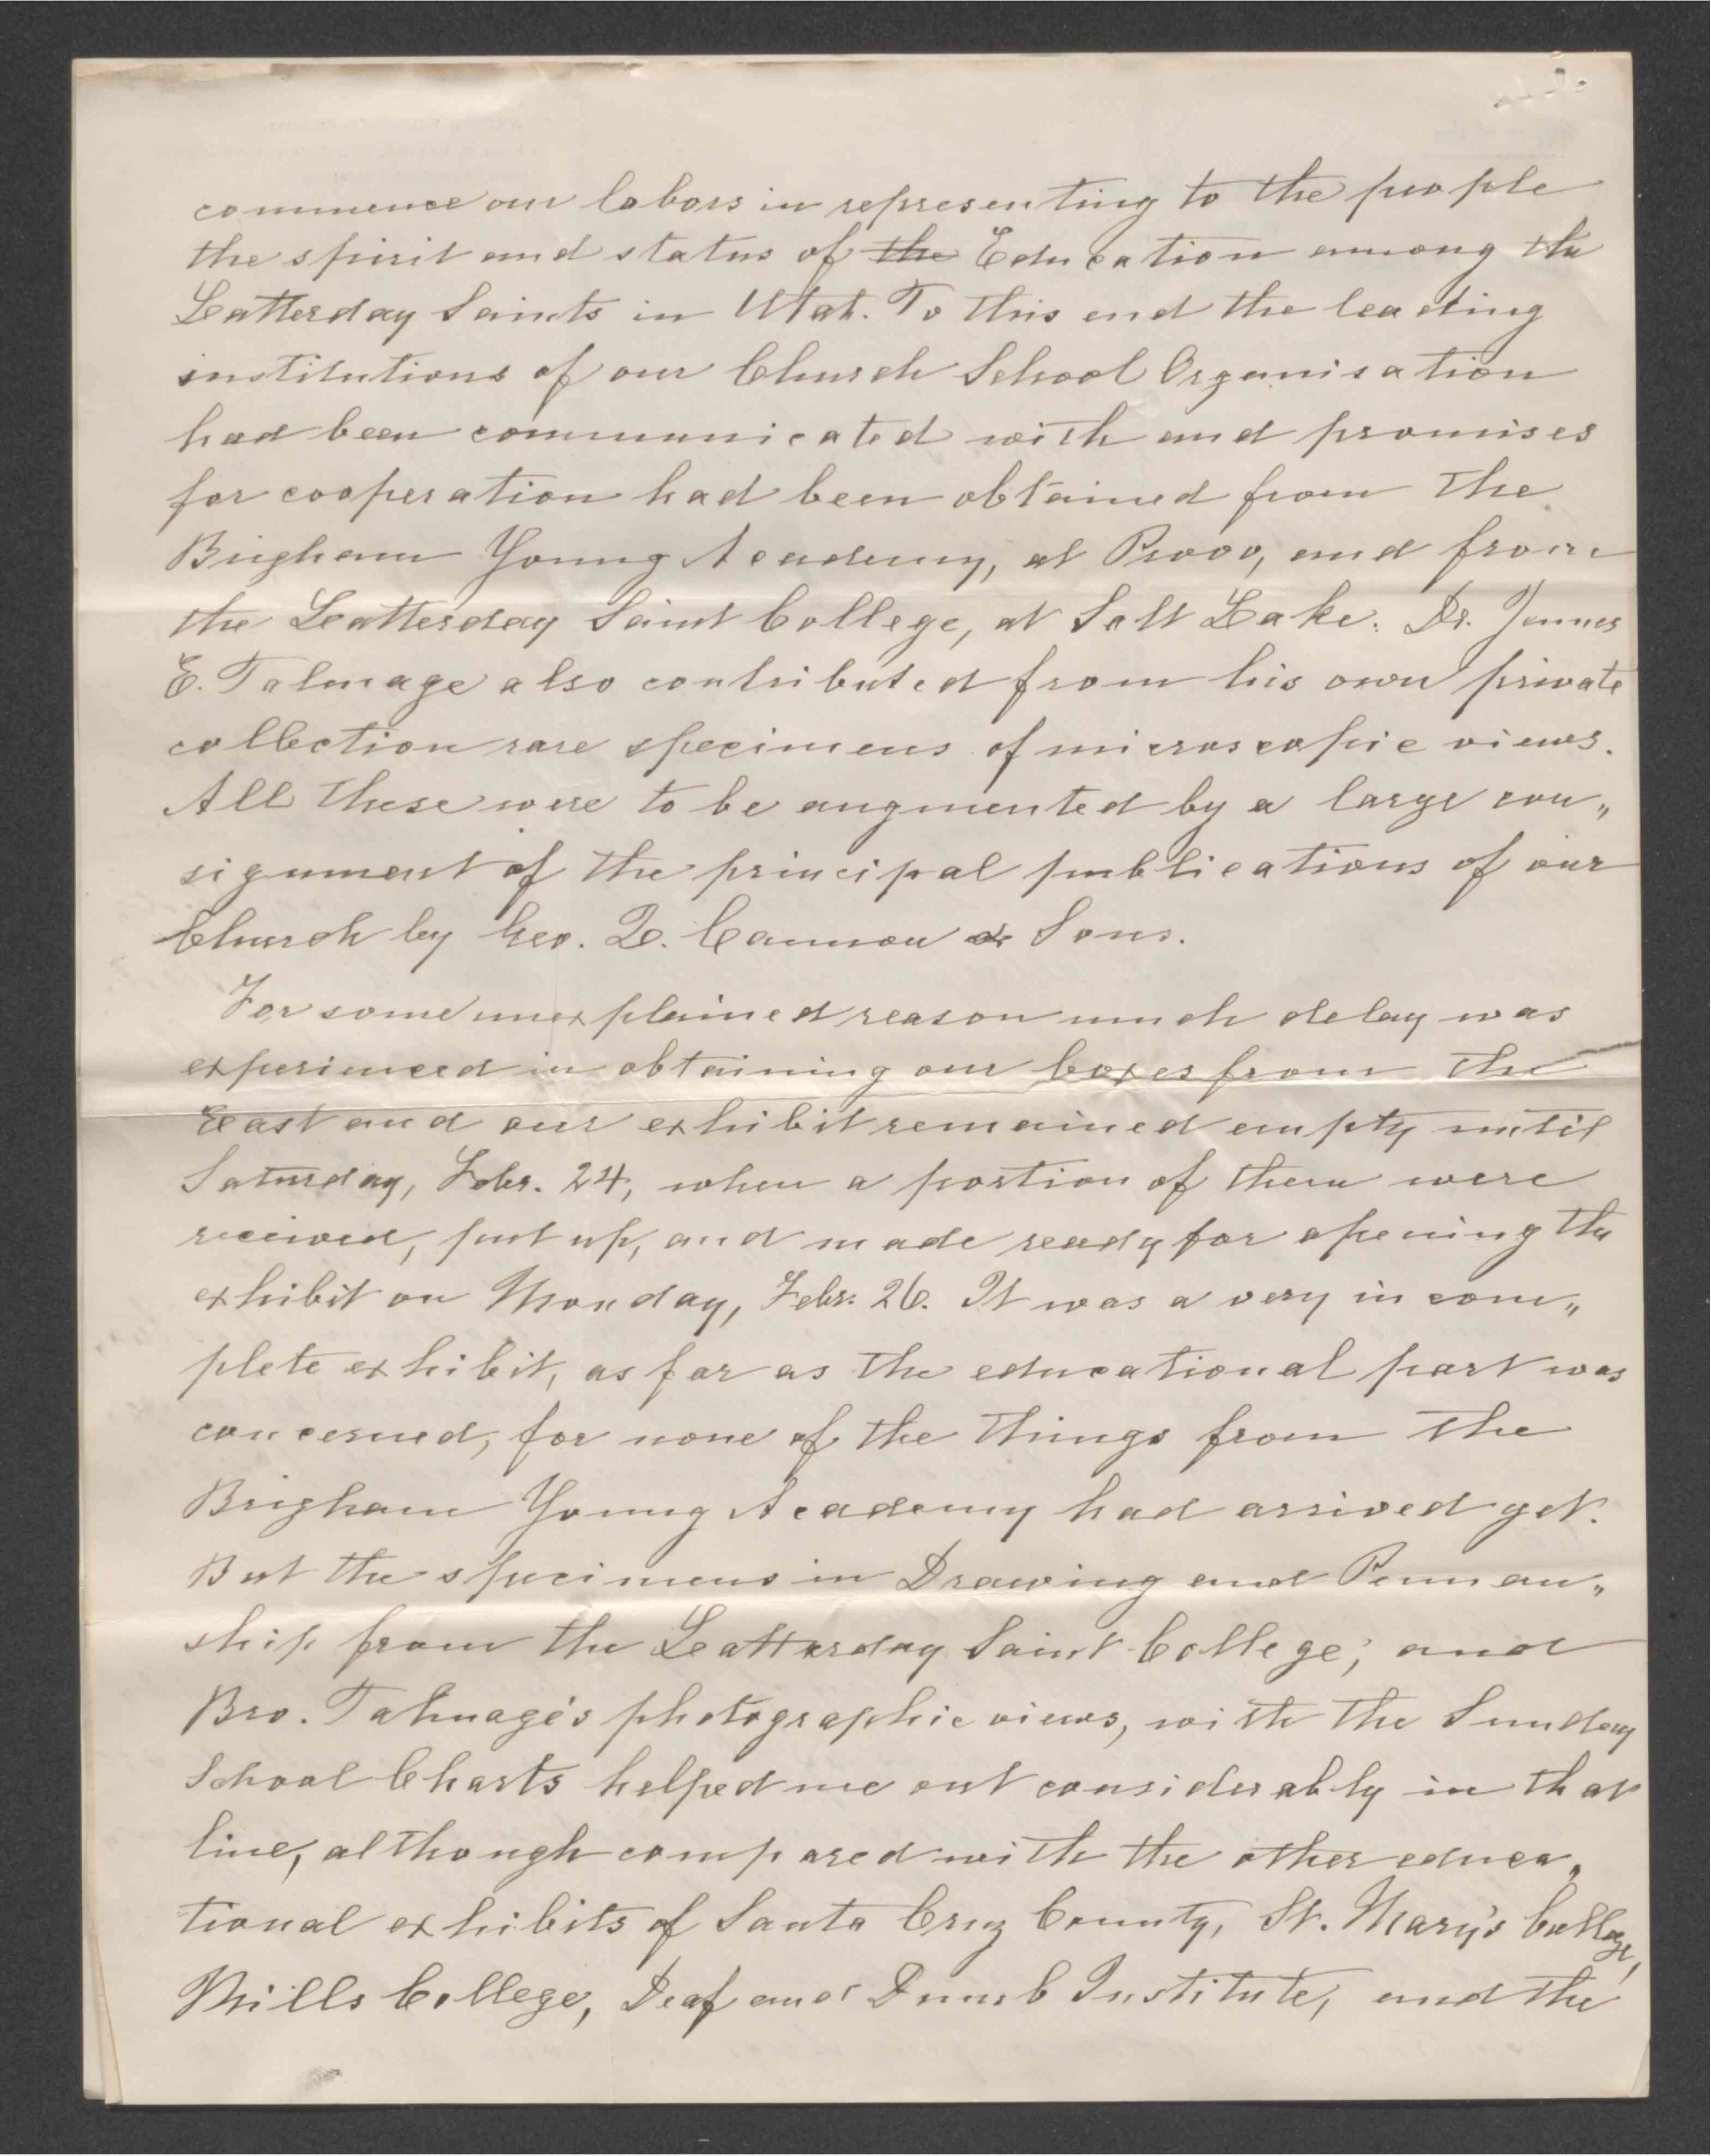 commence our labors in representing to the people
the spirit and status of the Education among the
Latterday Saints in Utah. To this end the leading
institutions of our Church School Organisation
had been communicated with and promises
for cooperation had been obtained from the
Brigham Young Academy, at Provo, and from
the Latterday Saint College, at Salt Lake. Dr. James
E. Talmage also contributed from his own private
collection rare specimens of microscopic views.
All these were to be augmented by a large con„
signment of the principal publications of our
Church by Geo. Q. Cannon & Sons.
For some unexplained reason much delay was
experienced in obtaining our boxes from the
East and our exhibit remained empty until
Saturday, Febr. 24, when a portion of them were
received, put up, and made ready for opening the
exhibit on Monday, Febr. 26. It was a very incom„
plete exhibit, as far as the educational part was
concerned, for none of the things from the
Brigham Young Academy had arrived yet.
But the specimens in Drawing and Penman„
ship from the Latterday Saint College, and
Bro. Talmage's photographic views, with the Sunday
School Charts helped me out considerably in that
line, although compared with the other educa„
tional exhibits of Santa Cruz County, St. Mary's College,
Mills College, Deaf and Dumb Institute, and the